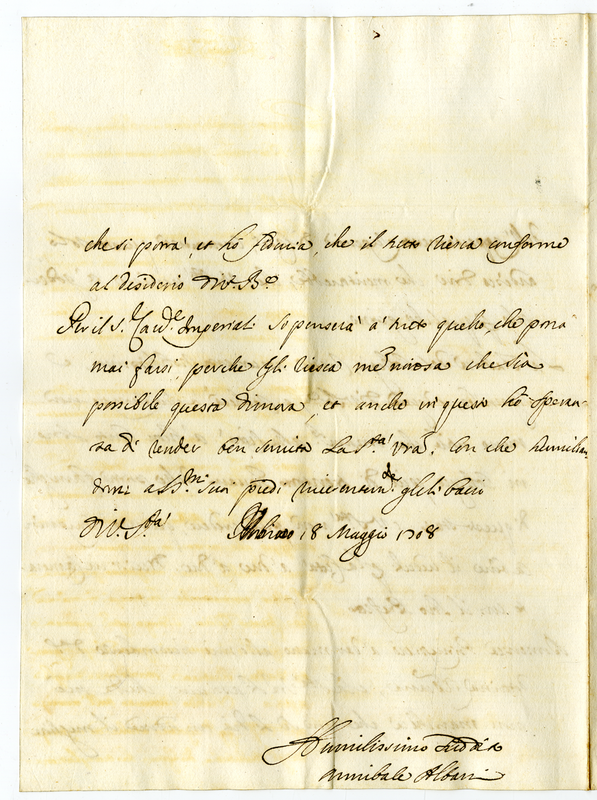 che si porrà, et hò fiducia, che il tutto riesca conforme
al desiderio di V. B.e
Per il S.r Card.e Imperiali si penserà à tutto quello, che porrà
mai farsi, perche gli riesca me' noiosa che sia
possibile questa dimora, et anche in questo hò speran-
za di render ben servita la S.tà V'ra. Con che humilian-
domi a SS.mi suoi piedi riverentem.te gleli bacio
Di V. S.tà Urbino 18 Maggio 1708
Humilissimo Suddito
Annibale Albani